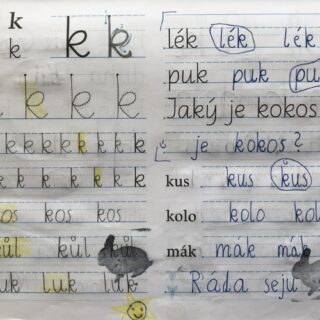 k
k k k
k k k k
k k k k k k k k k k
k k k k k k k k
os kos kos
ůl kůl kůl
uk luk luk
lék lék lék
puk puk pu
Jaký je kokos
je kokos?
kus kus kus
kolo kolo kol
mák mák mák
Ráda seju